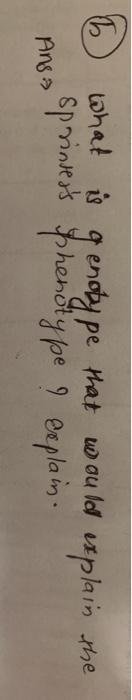 (b) What is genotype that would explain the
sprinter's phenotype? explain.
Ans⇒